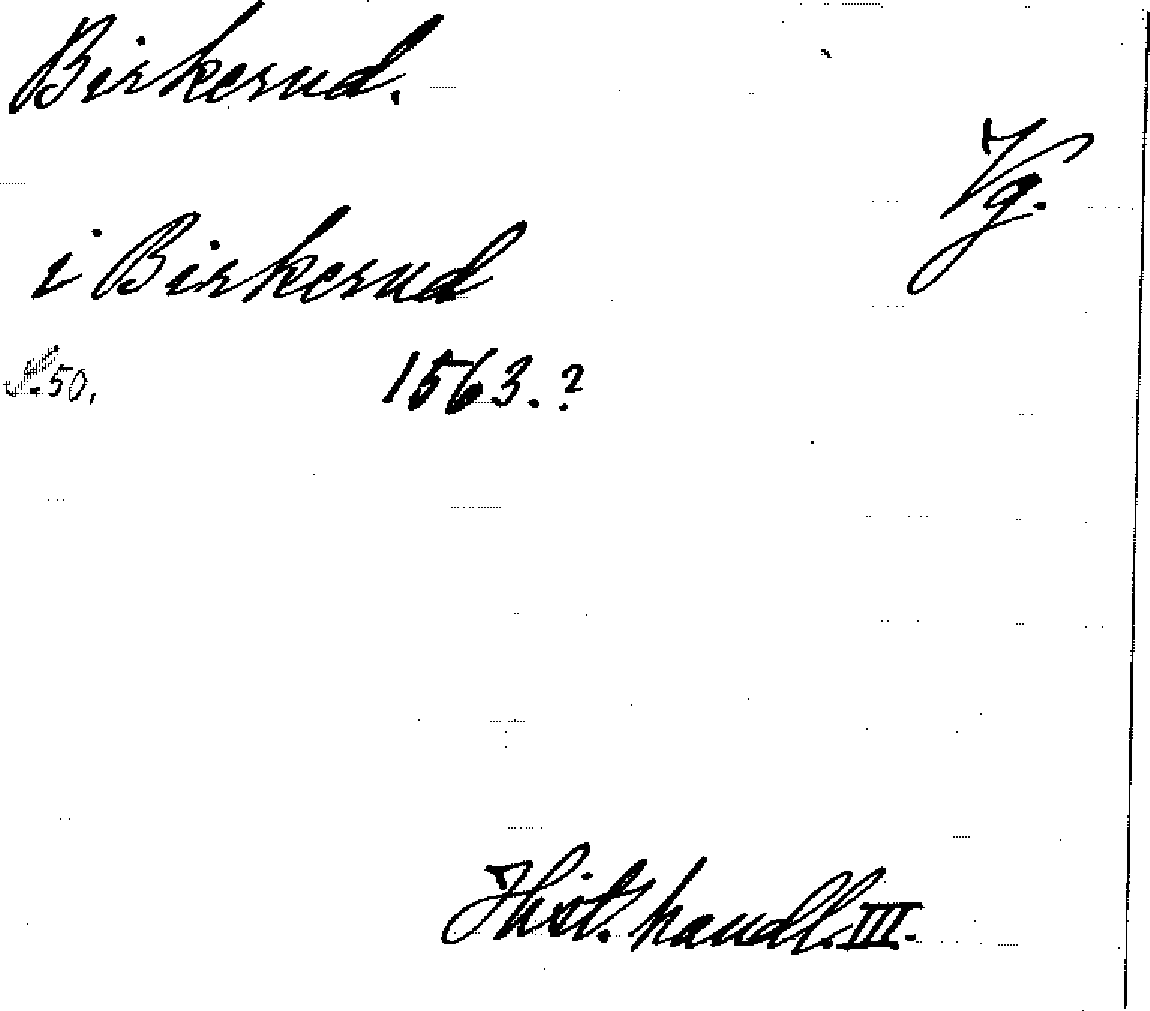 Birkerud.
Vg.
i Birkerud
N:50. 1563.?
Hist. handl. III.